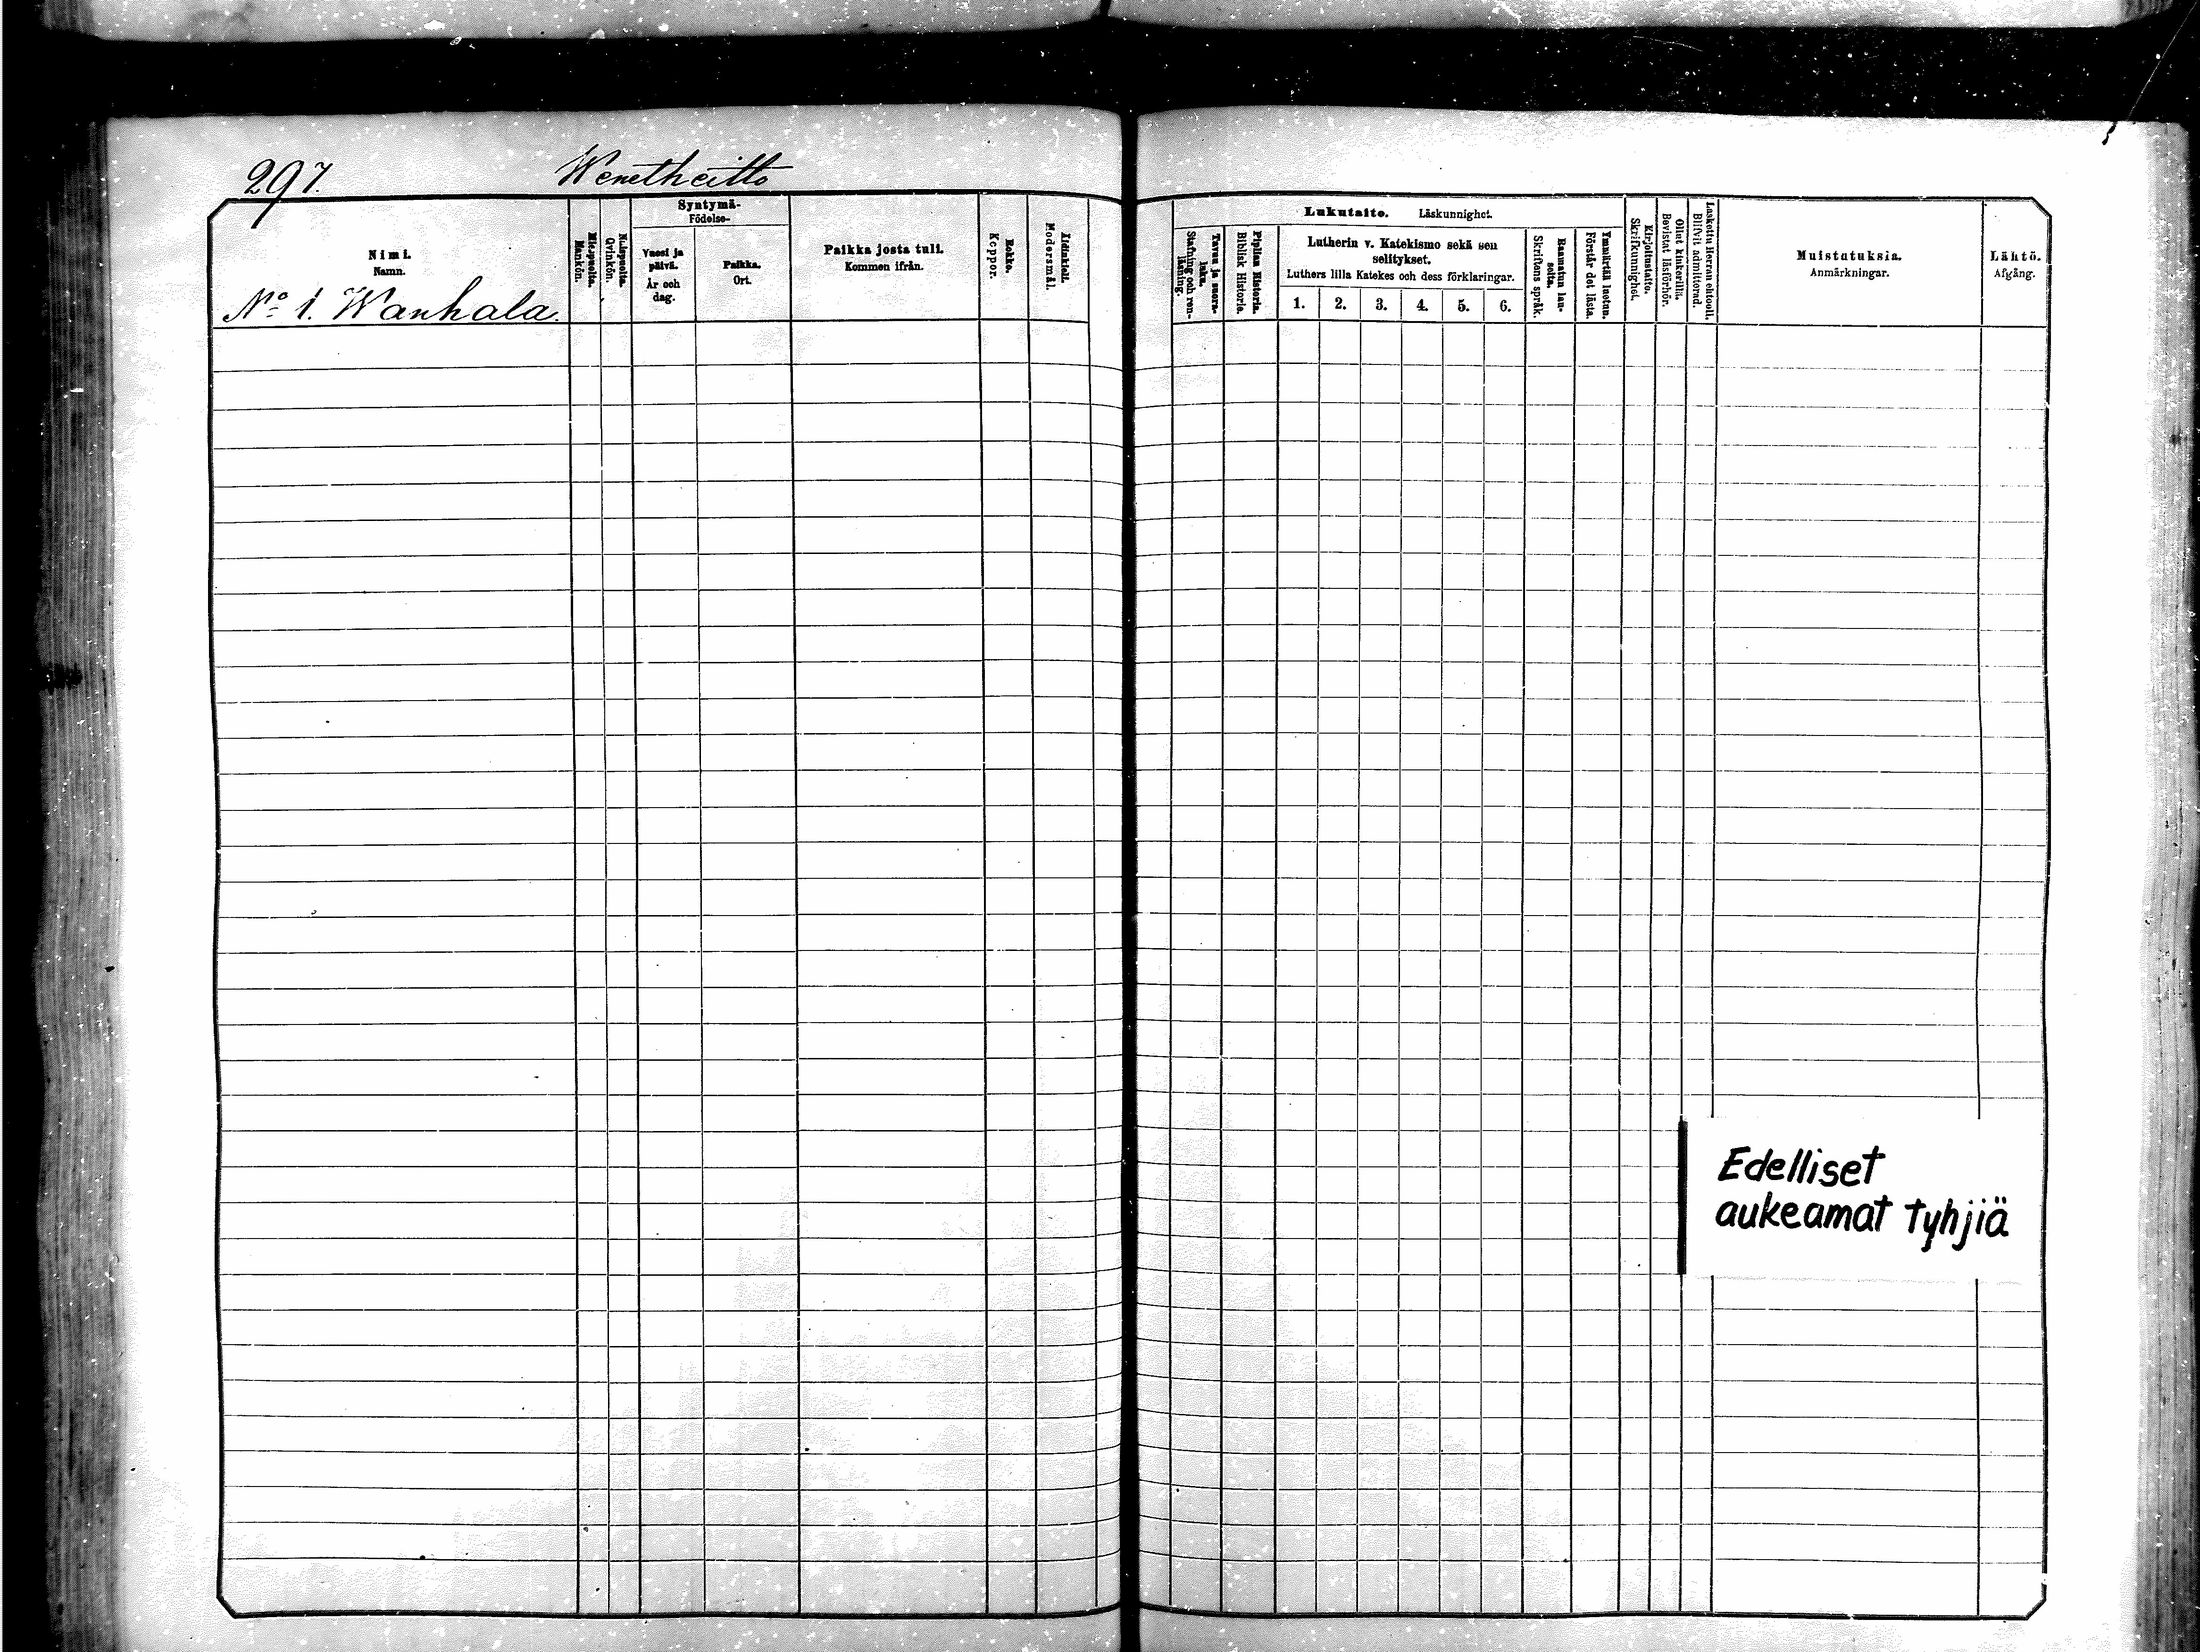 297.
Wenetheitto
Nimi.
Namn.
No 1. Wanhala.
Miespuolia.
Mankön.
Naispuolia.
Qvinkön.
Syntymä-
Födelse-
Vuosi ja
päivä.
År och
dag.
Paikka.
Ort.
Paikka josta tuli.
Kommen ifrån.
Rokko.
Koppor.
Äidinkieli.
Modersmål.
Lukutaito. Läskunnighet.
Tavuu ja suora-
luku.
Stafning och ren-
läsning.
Piplian Historia.
Biblisk Historia.
Lutherin v. Katekismo sekä sen
selitykset.
Luthers lilla Katekes och dess förklaringar.
1. 2. 3. 4. 5. 6.
Raamatun lau-
seita.
Skriftens språk.
Ymmärtää luetun.
Förstår det lästa.
Kirjoitustaito.
Skrifkunnighet.
Ollut kinkerillä.
Bevistat läsförhör.
Laskettu Herran ehtooll.
Blifvit admitterad.
Muistutuksia.
Anmärkningar.
Lähtö.
Afgång.
Edelliset
aukeamat tyhjiä